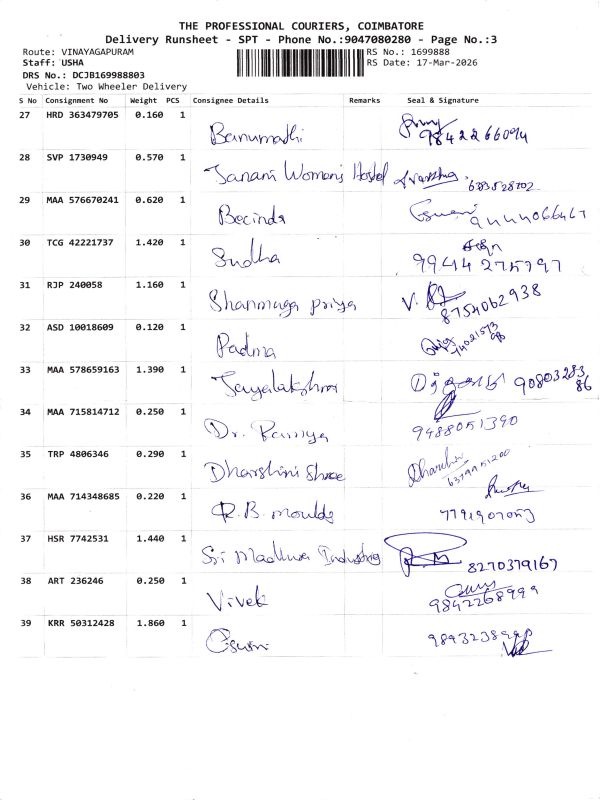 THE PROFESSIONAL COURIERS, COIMBATORE
Delivery Runsheet - SPT - Phone No.:9047080280 - Page No.:3
Route: VINAYAGAPURAM RS No.: 1699888
Staff: USHA RS Date: 17-Mar-2026
DRS No.: DCJB169988803
Vehicle: Two Wheeler Delivery
S No Consignment No Weight PCS Consignee Details Remarks Seal & Signature
27 HRD 363479705 0.160 1
Banumathi 9842266094
28 SVP 1730949 0.570 1
Janani Women's Hostel
29 MAA 576670241 0.620 1
Becinda
30 TCG 42221737 1.420 1
Sudha 9944275797
31 RJP 240058 1.160 1
Shanmuga priya V. 8754062938
32 ASD 10018609 0.120 1
Padma
33 MAA 578659163 1.390 1
Jayalakshmi 9080328386
34 MAA 715814712 0.250 1
Dr. Ramya 9488051390
35 TRP 4806346 0.290 1
Dharshini Shree 6379951200
36 MAA 714348685 0.220 1
R.B. moulds
37 HSR 7742531 1.440 1
Sri Madhwa Industries 8270379167
38 ART 236246 0.250 1
Vivek 9842268999
39 KRR 50312428 1.860 1
Eswari